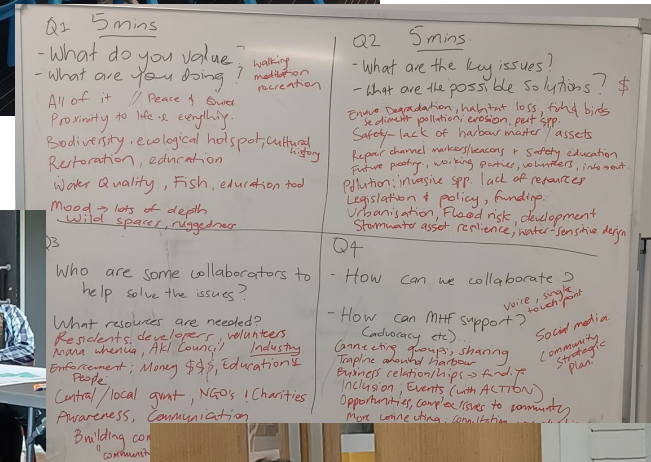 Q1 5 mins
- What do you value?
- What are you doing?
walking
meditation
recreation
All of it // Peace & Quiet
Proximity to life & everything
Biodiversity, ecological hotspot, cultural history
Restoration, education
Water Quality, Fish, education tool
Mood → lots of depth
wild spaces, ruggedness
Q2 5 mins
- What are the key issues?
- What are the possible solutions? $
Enviro Degradation, habitat loss, fish & birds
Sediment pollution, erosion, pest spp.
Safety - lack of harbour master / assets
Repair channel markers/beacons + safety education
Future proofing, working parties, volunteers,
Pollution; invasive spp. lack of resources
Legislation & policy, funding.
Urbanisation, Flood risk, development
Stormwater asset resilience, water-sensitive design
Q3
Who are some collaborators to
help solve the issues?
What resources are needed?
Residents, developers, volunteers
Mana whenua, Akl Council, Industry
Enforcement; Money $$$, Education $
People
Central/local gvmt, NGO's! Charities
Awareness, Communication
Building
Q4
- How can we collaborate?
- How can MHF support?
voice, single
touchpoint
(advocacy etc)
Connecting groups, sharing
Trapline around harbour
Business relationships →
Inclusion; Events (with ACTION)
Opportunities, complex issues to community
More connecting,
Social media
Community
Strategic
Plan.